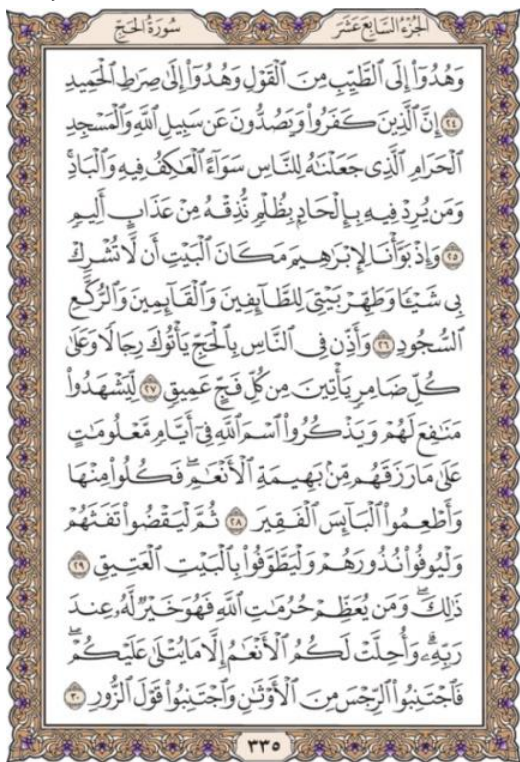 الجُزْءُ السَّابِعَ عَشَرَ
سُورَةُ الحَجِّ
وَهُدُوٓا۟ إِلَى ٱلطَّيِّبِ مِنَ ٱلْقَوْلِ وَهُدُوٓا۟ إِلَىٰ صِرَٰطِ ٱلْحَمِيدِ
٢٤ إِنَّ ٱلَّذِينَ كَفَرُوا۟ وَيَصُدُّونَ عَن سَبِيلِ ٱللَّهِ وَٱلْمَسْجِدِ
ٱلْحَرَامِ ٱلَّذِى جَعَلْنَٰهُ لِلنَّاسِ سَوَآءً ٱلْعَٰكِفُ فِيهِ وَٱلْبَادِ ۚ
وَمَن يُرِدْ فِيهِ بِإِلْحَادٍۭ بِظُلْمٍ نُّذِقْهُ مِنْ عَذَابٍ أَلِيمٍ
٢٥ وَإِذْ بَوَّأْنَا لِإِبْرَٰهِيمَ مَكَانَ ٱلْبَيْتِ أَن لَّا تُشْرِكْ
بِى شَيْـًٔا وَطَهِّرْ بَيْتِىَ لِلطَّآئِفِينَ وَٱلْقَآئِمِينَ وَٱلرُّكَّعِ
ٱلسُّجُودِ ٢٦ وَأَذِّن فِى ٱلنَّاسِ بِٱلْحَجِّ يَأْتُوكَ رِجَالًا وَعَلَىٰ
كُلِّ ضَامِرٍ يَأْتِينَ مِن كُلِّ فَجٍّ عَمِيقٍ ٢٧ لِّيَشْهَدُوا۟
مَنَٰفِعَ لَهُمْ وَيَذْكُرُوا۟ ٱسْمَ ٱللَّهِ فِىٓ أَيَّامٍ مَّعْلُومَٰتٍ
عَلَىٰ مَا رَزَقَهُم مِّنۢ بَهِيمَةِ ٱلْأَنْعَٰمِ ۖ فَكُلُوا۟ مِنْهَا
وَأَطْعِمُوا۟ ٱلْبَآئِسَ ٱلْفَقِيرَ ٢٨ ثُمَّ لْيَقْضُوا۟ تَفَثَهُمْ
وَلْيُوفُوا۟ نُذُورَهُمْ وَلْيَطَّوَّفُوا۟ بِٱلْبَيْتِ ٱلْعَتِيقِ ٢٩
ذَٰلِكَ ۖ وَمَن يُعَظِّمْ حُرُمَٰتِ ٱللَّهِ فَهُوَ خَيْرٌ لَّهُۥ عِندَ
رَبِّهِۦ ۗ وَأُحِلَّتْ لَكُمُ ٱلْأَنْعَٰمُ إِلَّا مَا يُتْلَىٰ عَلَيْكُمْ ۖ
فَٱجْتَنِبُوا۟ ٱلرِّجْسَ مِنَ ٱلْأَوْثَٰنِ وَٱجْتَنِبُوا۟ قَوْلَ ٱلزُّورِ ٣٠
٣٣٥